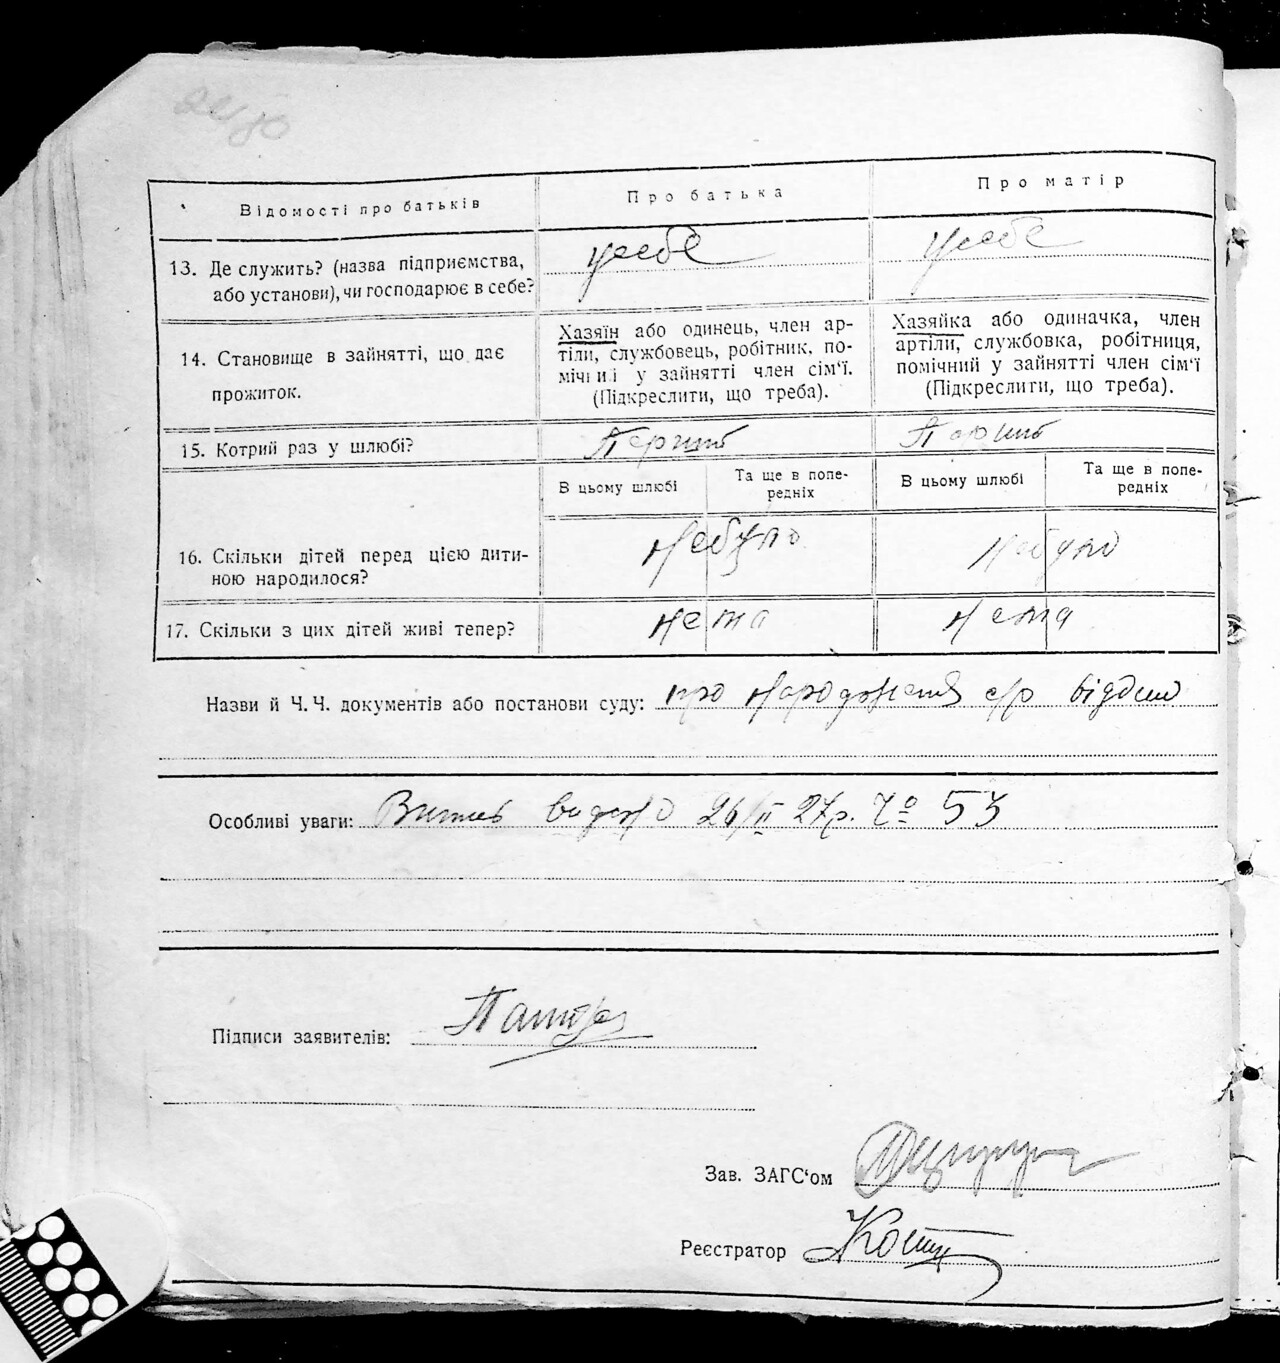 Відомості про батьків
Про батька
Про матір
13. Де служить? (назва підприємства,
або установи), чи господарює в себе?
усебе
усебе
14. Становище в зайнятті, що дає
прожиток.
Хазяїн або одинець, член ар-
тіли, службовець, робітник, по-
мічний у зайнятті член сім'ї.
(Підкреслити, що треба).
Хазяйка або одиначка, член
артіли, службовка, робітниця,
помічний у зайнятті член сім'ї
(Підкреслити, що треба).
15. Котрий раз у шлюбі?
Перший
Перший
В цьому шлюбі
Та ще в попе-
редніх
В цьому шлюбі
Та ще в попе-
редніх
16. Скільки дітей перед цією дити-
ною народилося?
небуло
небуло
17. Скільки з цих дітей живі тепер?
нема
нема
Назви й Ч. Ч. документів або постанови суду: про народження с/р
Особливі уваги: 26/II 27р. № 53
Підписи заявителів:
Зав. ЗАГС'ом
Реєстратор